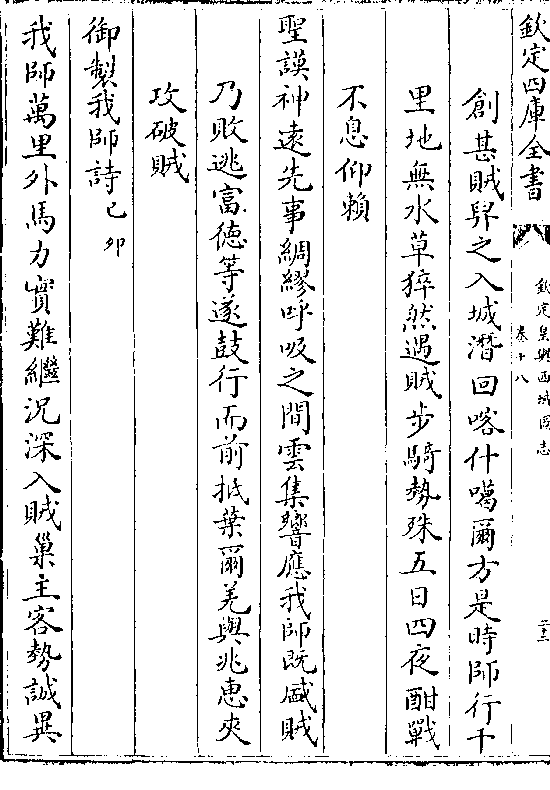 欽定四庫全書
欽定皇輿西域圖志
卷十八
二十三
創甚賊舁之入城潛回喀什噶爾方是時師行千
里地無水草猝然遇賊步騎勢殊五日四夜酣戰
不息仰賴
聖謨神遠先事綢繆呼吸之間雲集響應我師既盛賊
乃敗逃富德等遂鼓行而前抵葉爾羌與兆惠夾
攻破賊
御製我師詩己卯
我師萬里外馬力實難繼況深入賊巢主客勢誠異